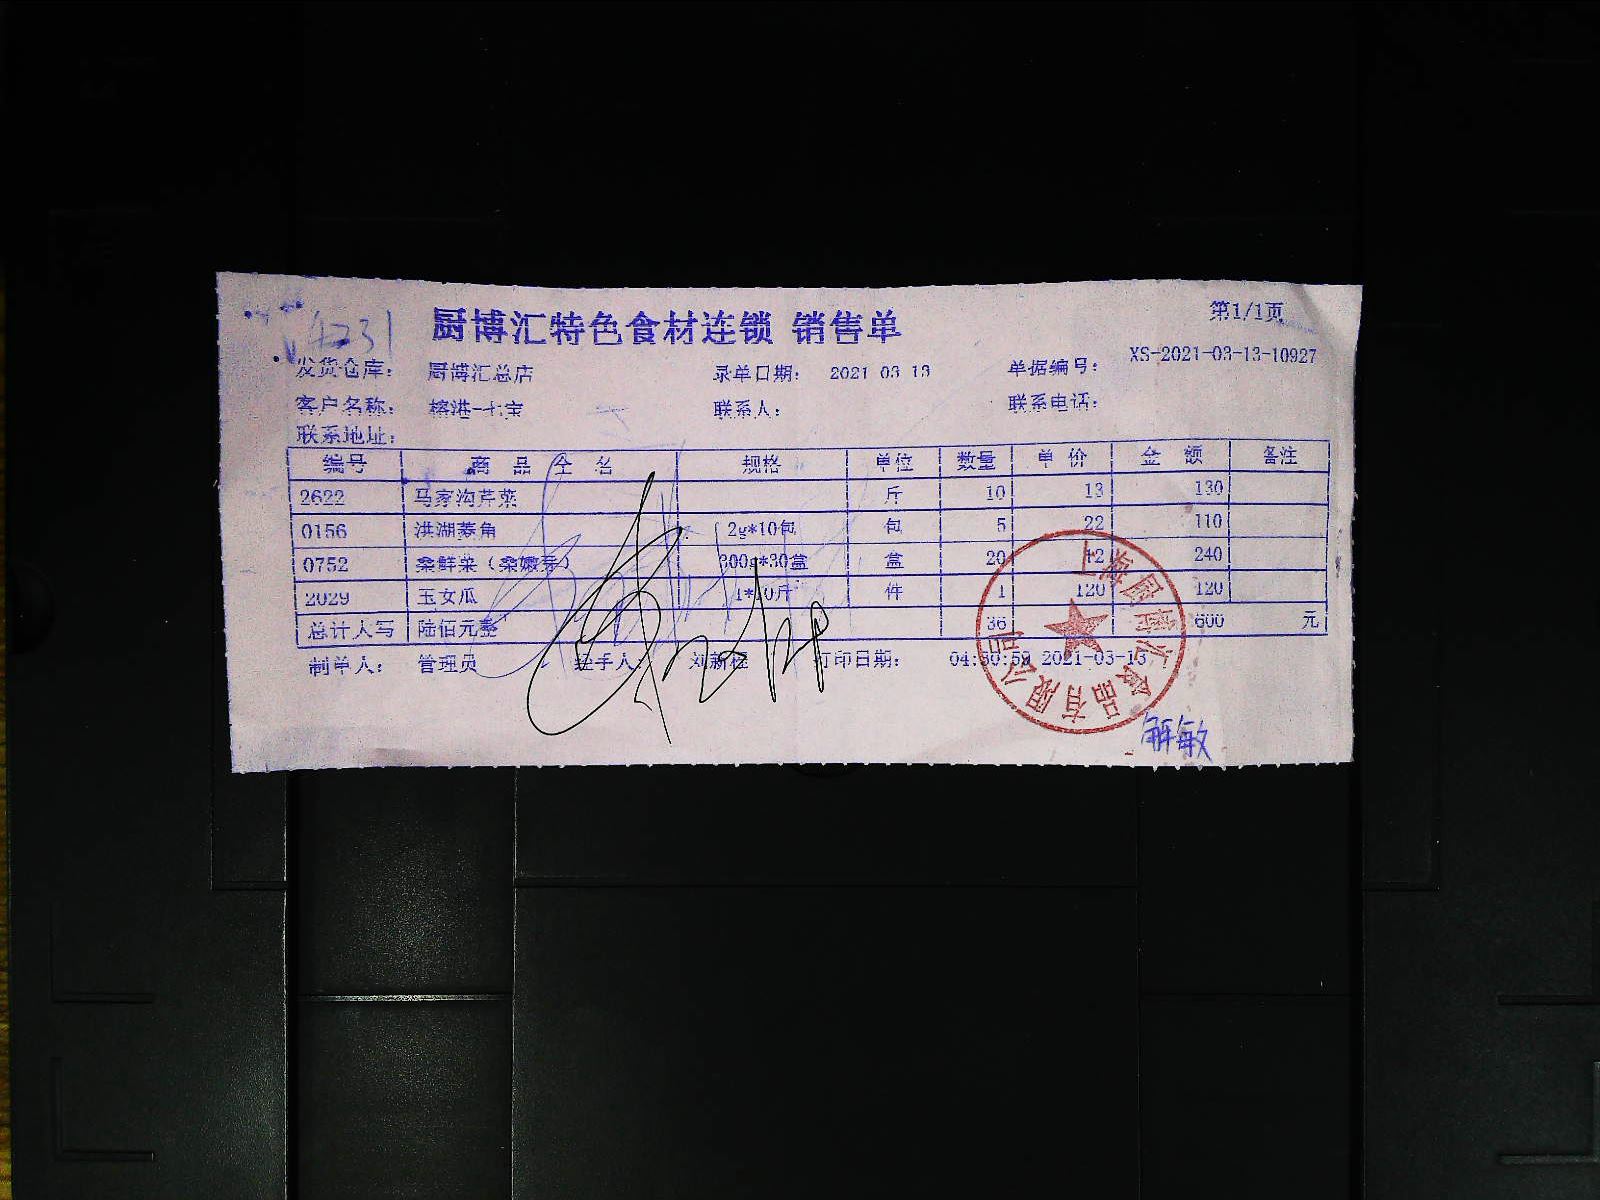 4231
厨博汇特色食材连锁 销售单
第1/1页
发货仓库： 厨博汇总店 录单日期： 2021 03 13 单据编号： XS-2021-03-13-10927
客户名称： 榕港-七宝 联系人： 联系电话：
联系地址：
编号 商品全名 规格 单位 数量 单价 金额 备注
2622 马家沟芹菜 斤 10 13 130
0156 洪湖菱角 2g*10包 包 5 22 110
0752 桑鲜菜（桑嫩芽） 300g*30盒 盒 20 12 240
2029 玉女瓜 1*10斤 件 1 120 120
总计人写 陆佰元整 36 600 元
制单人： 管理员 经手人： 刘新程 打印日期： 04:30:59 2021-03-13
上海厨博汇食品有限公司
解敏